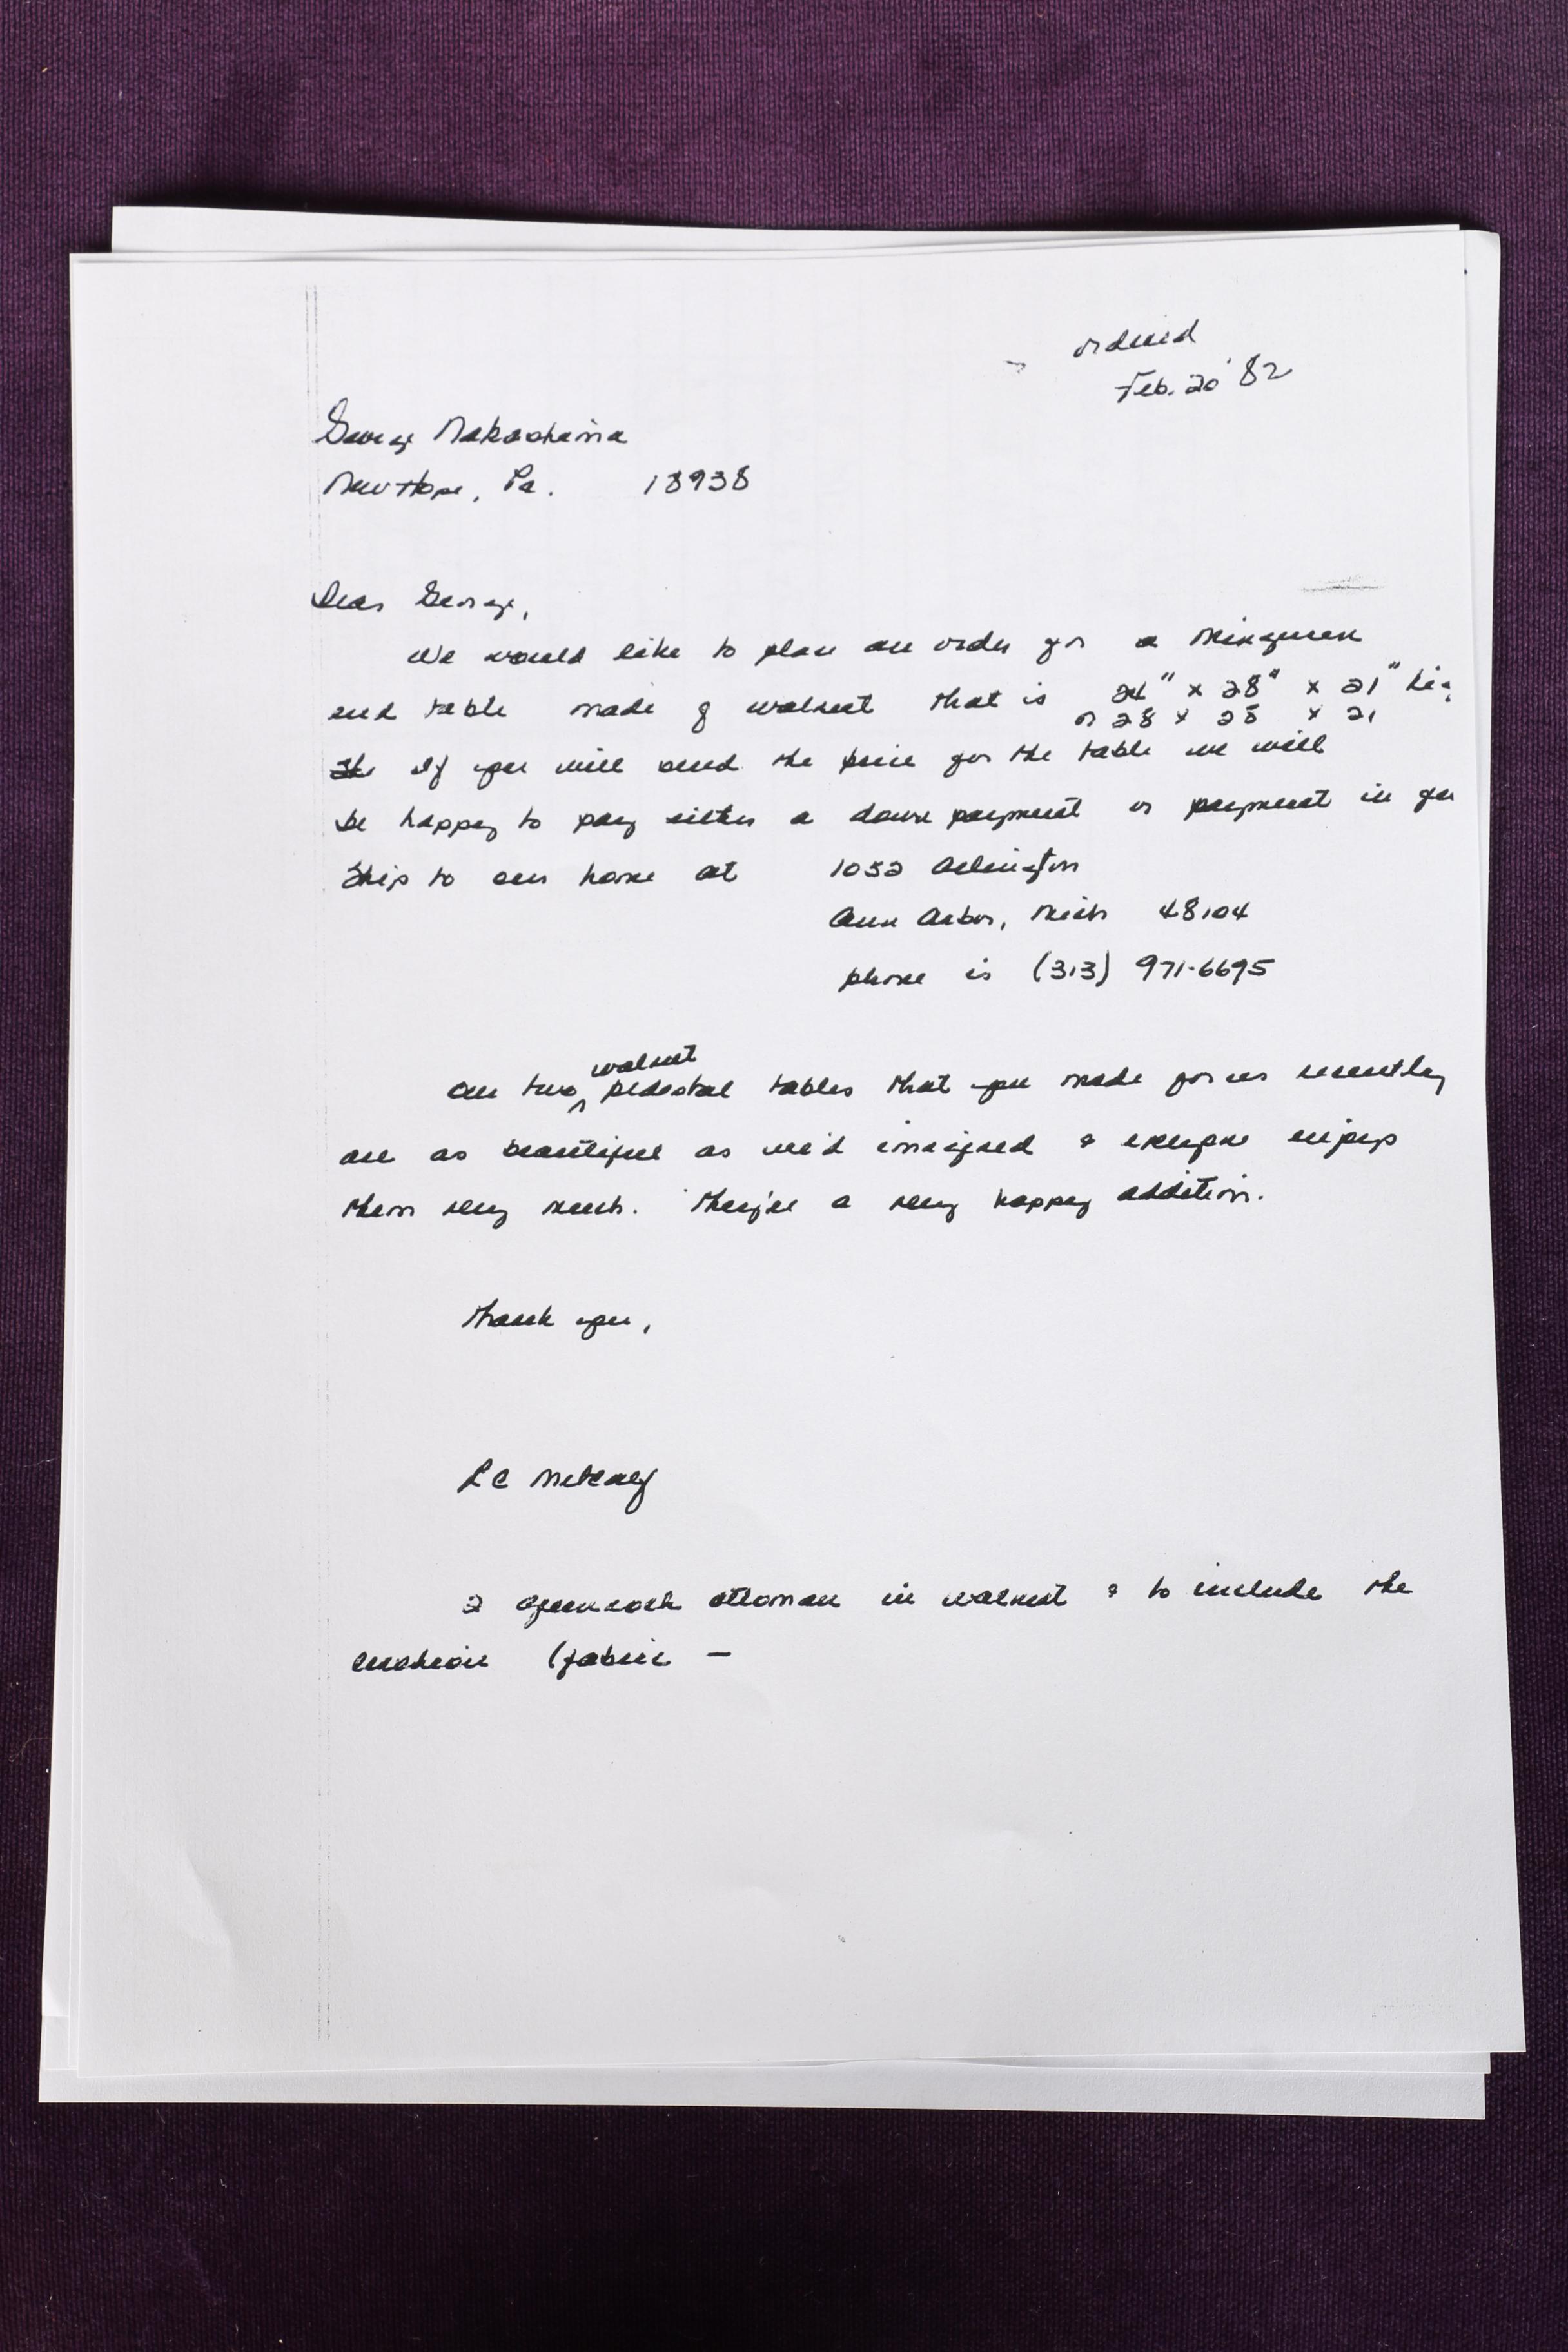 ordered
Feb. 20 '82
George Nakashima
New Hope, Pa. 18938
Dear George,
We would like to place an order for a Minguren
end table made of walnut that is 24" x 28" x 21"
or 28 x 28 x 21
If you will send the price for the table we will
be happy to pay either a down payment or payment in
Ship to our home at 1052 Arlington
Ann Arbor, Mich 48104
phone is (313) 971-6695
walnut
Our two pedestal tables that you made for us recently
are as beautiful as we'd imagined & everyone enjoys
them very much. They're a very happy addition.
Thank you,
R C Metcalf
2 greenrock ottoman in walnut & to include the
cushion (fabric —